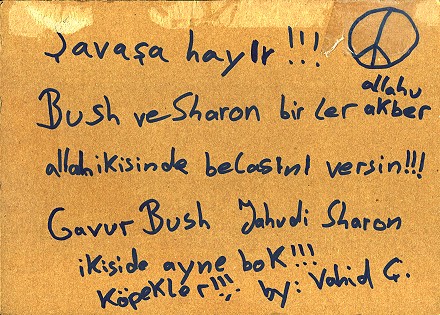 Savaşa hayır!!!
allahu
Bush ve Sharon bir ler akber
allah ikisinde belasini versin!!!
Gavur Bush Jahudi Sharon
ikiside ayne bok!!!
Köpekler!!! by: Vahid G.